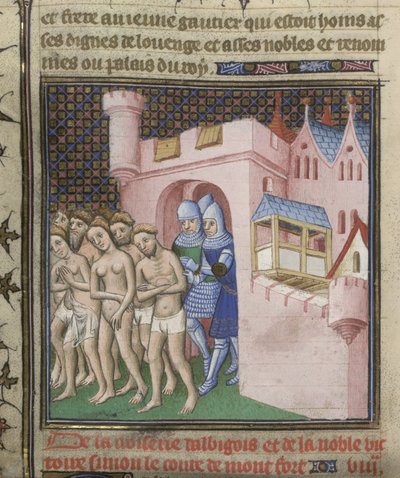 et frere au ieune gautier qui estoit homs as
ses dignes de louenge et asses nobles et renom
mes ou palais du roy.
De la boiserie dalbigois et de la noble vic
toire simon le conte de mont fort viii.